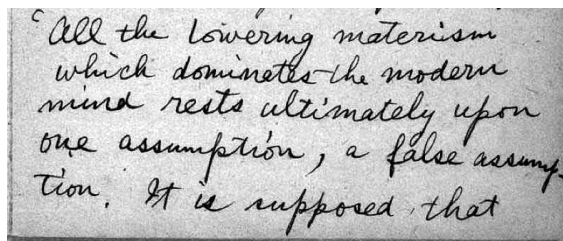 "All the lowering materism
which dominates the modern
mind rests ultimately upon
one assumption, a false assump-
tion. It is supposed that